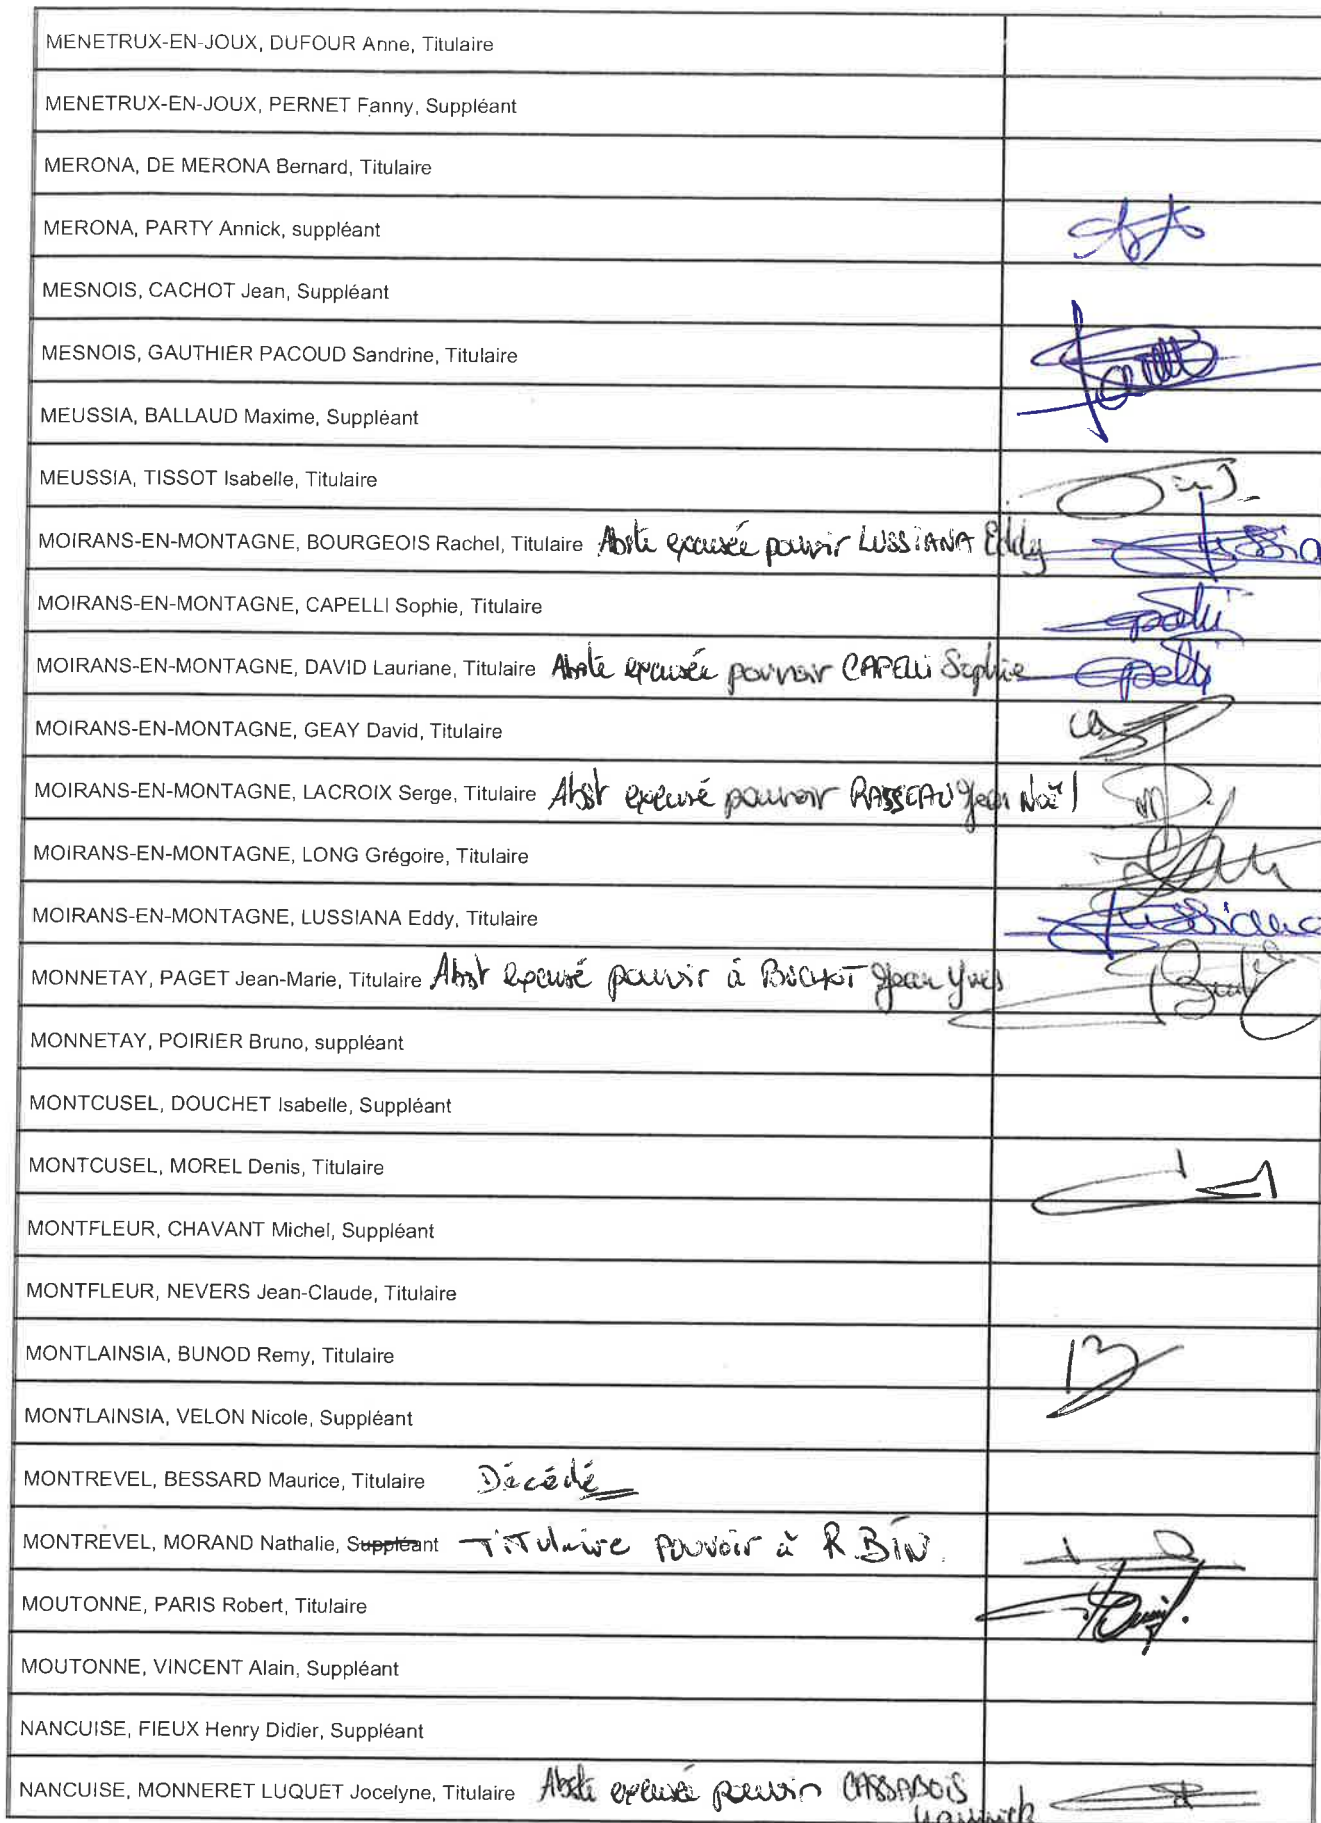 MENETRUX-EN-JOUX, DUFOUR Anne, Titulaire
MENETRUX-EN-JOUX, PERNET Fanny, Suppléant
MERONA, DE MERONA Bernard, Titulaire
MERONA, PARTY Annick, suppléant
MESNOIS, CACHOT Jean, Suppléant
MESNOIS, GAUTHIER PACOUD Sandrine, Titulaire
MEUSSIA, BALLAUD Maxime, Suppléant
MEUSSIA, TISSOT Isabelle, Titulaire
MOIRANS-EN-MONTAGNE, BOURGEOIS Rachel, Titulaire Abste excusée pouvoir LUSSIANA Eddy
MOIRANS-EN-MONTAGNE, CAPELLI Sophie, Titulaire
MOIRANS-EN-MONTAGNE, DAVID Lauriane, Titulaire Abste excusée pouvoir CAPELLI Sophie
MOIRANS-EN-MONTAGNE, GEAY David, Titulaire
MOIRANS-EN-MONTAGNE, LACROIX Serge, Titulaire Abst excusé pouvoir RASSEAU Jean Noël
MOIRANS-EN-MONTAGNE, LONG Grégoire, Titulaire
MOIRANS-EN-MONTAGNE, LUSSIANA Eddy, Titulaire Lussiana
MONNETAY, PAGET Jean-Marie, Titulaire Abst excusé pouvoir à BUCHOT Jean Yves
MONNETAY, POIRIER Bruno, suppléant
MONTCUSEL, DOUCHET Isabelle, Suppléant
MONTCUSEL, MOREL Denis, Titulaire
MONTFLEUR, CHAVANT Michel, Suppléant
MONTFLEUR, NEVERS Jean-Claude, Titulaire
MONTLAINSIA, BUNOD Remy, Titulaire
MONTLAINSIA, VELON Nicole, Suppléant
MONTREVEL, BESSARD Maurice, Titulaire Décédé
MONTREVEL, MORAND Nathalie, Suppléant Titulaire pouvoir à R. BIN
MOUTONNE, PARIS Robert, Titulaire
MOUTONNE, VINCENT Alain, Suppléant
NANCUISE, FIEUX Henry Didier, Suppléant
NANCUISE, MONNERET LUQUET Jocelyne, Titulaire Abste excusée pouvoir CASSABOIS
Yannick